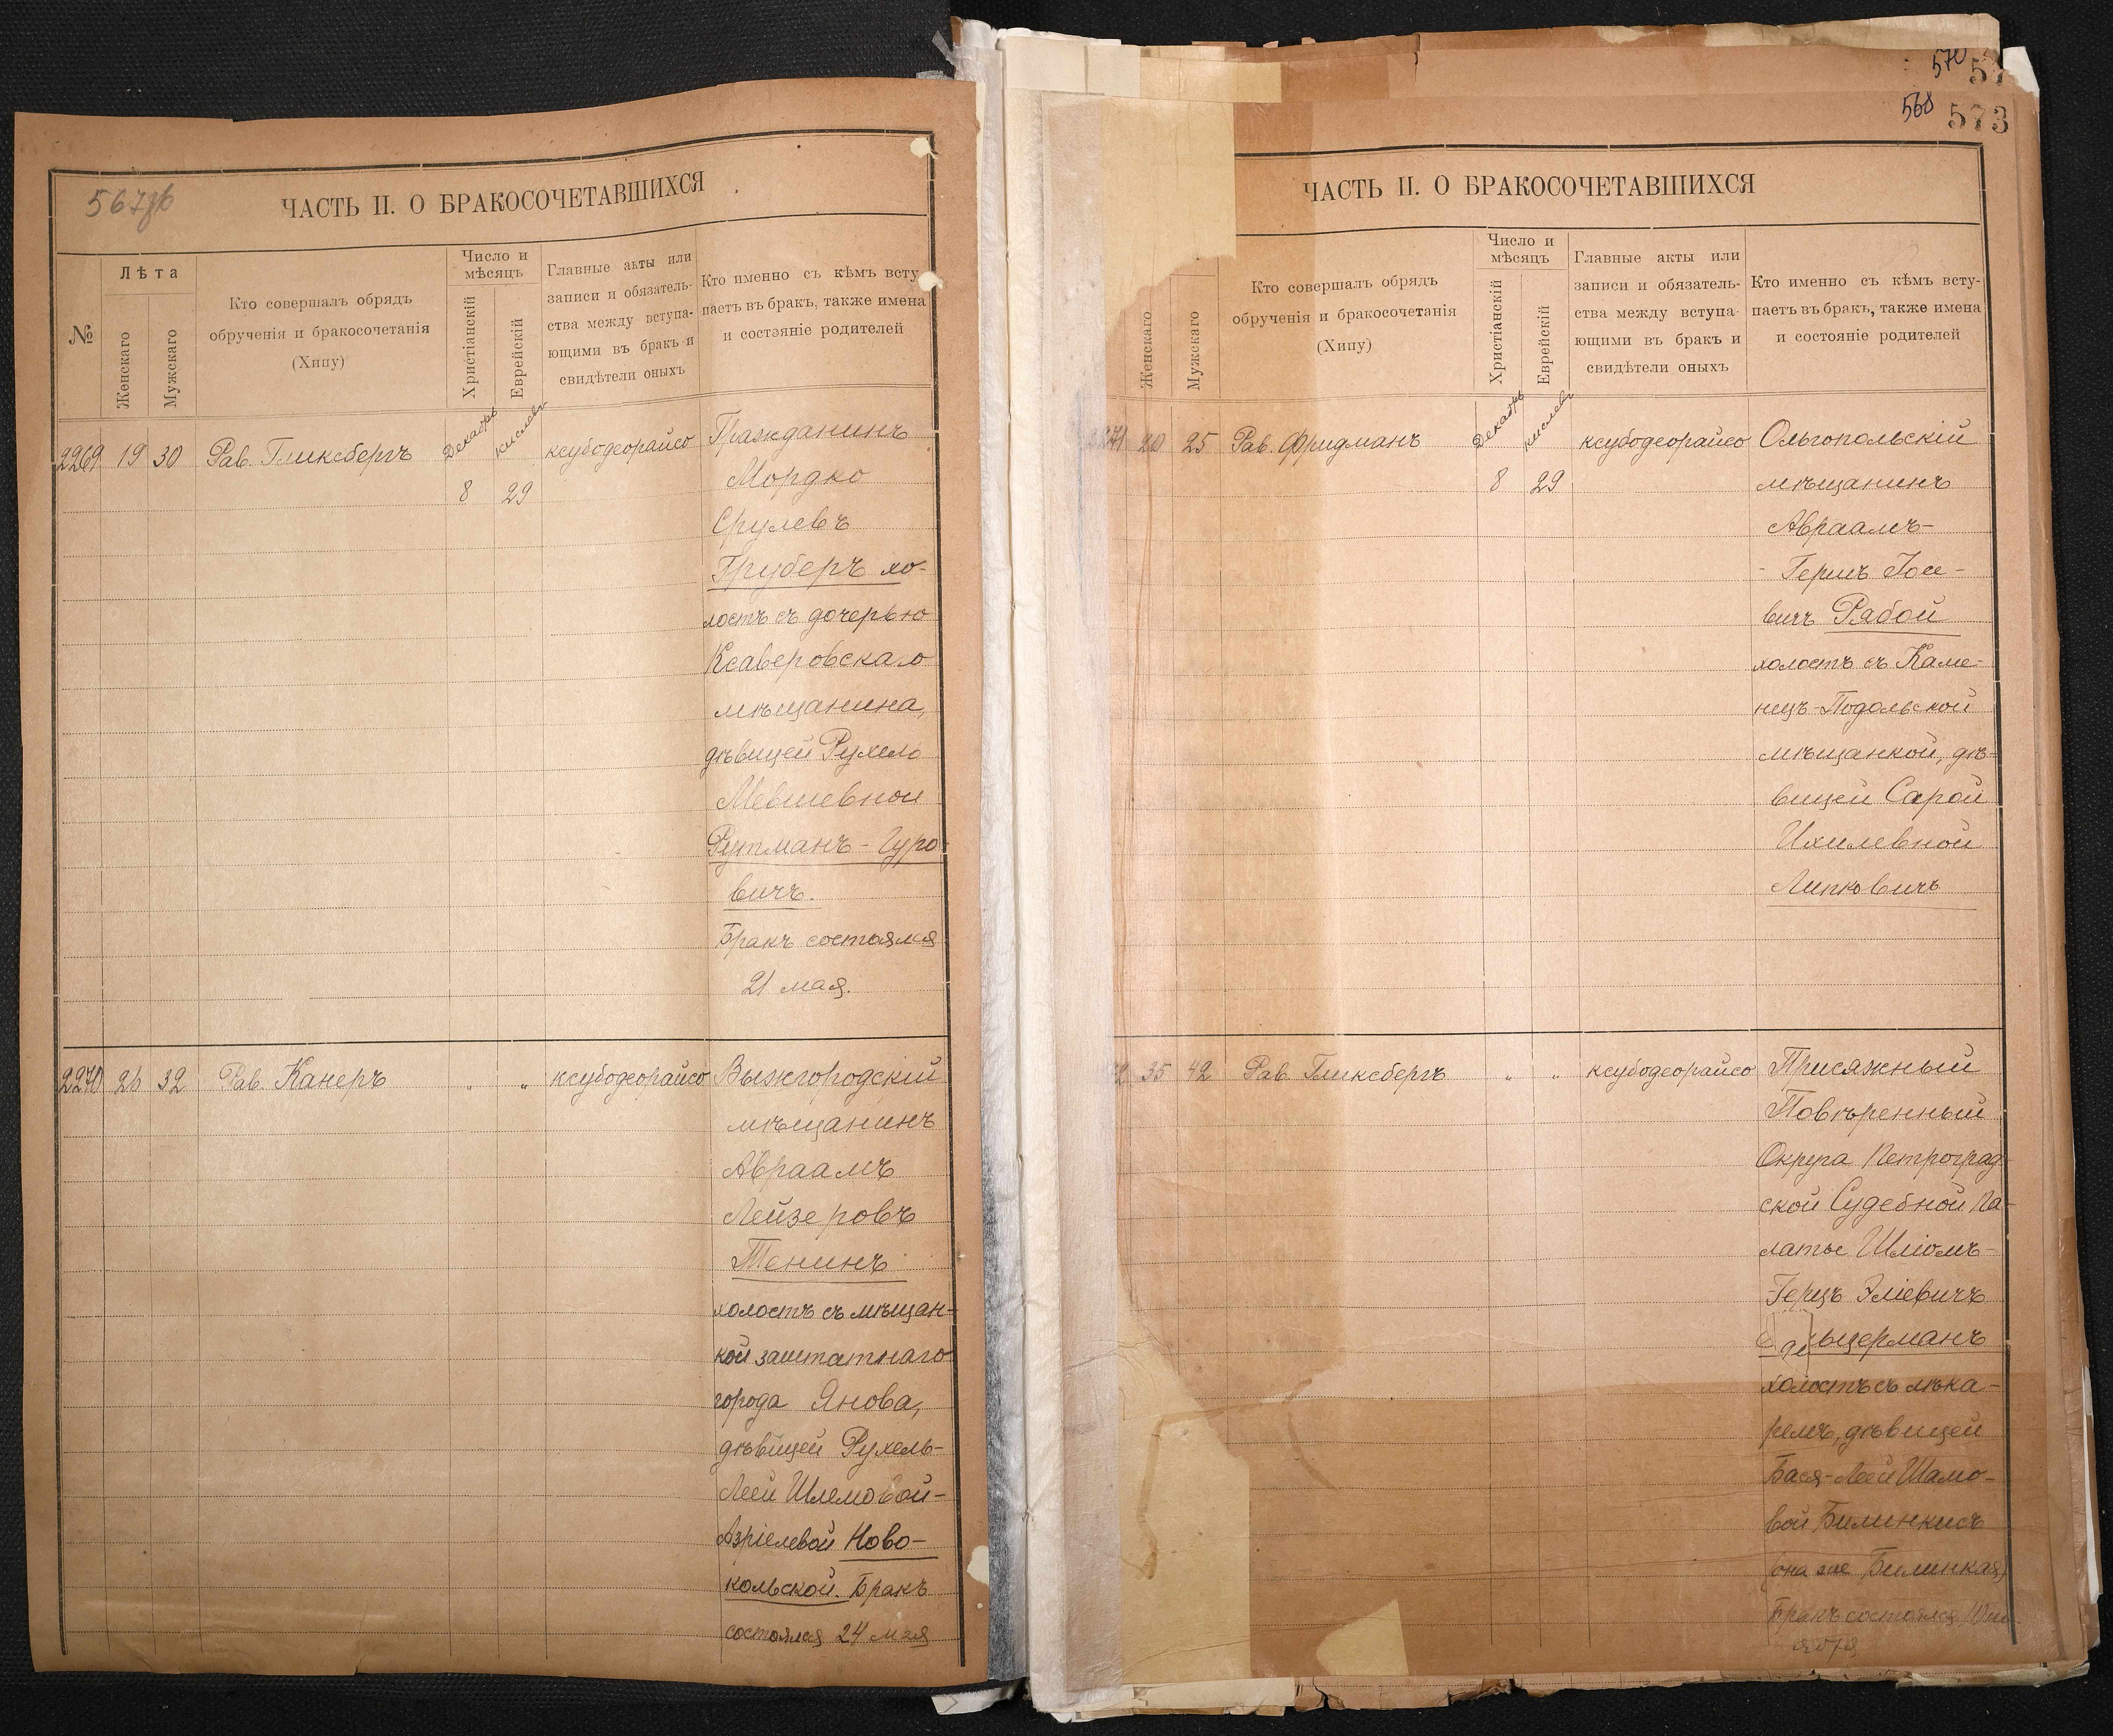 567об
ЧАСТЬ II. О БРАКОСОЧЕТАВШИХСЯ
№
Лѣта
Женскаго
Мужскаго
Кто совершалъ обрядъ
обрученія и бракосочетанія
(Хипу)
Число и
мѣсяцъ
Христіанскій
Еврейскій
Главные акты или
записи и обязатель-
ства между вступа-
ющими въ бракъ и
свидѣтели оныхъ
Кто именно съ кѣмъ всту-
паетъ въ бракъ, также имена
и состояніе родителей
2269 19 30 Рав. Гликсбергъ Декабрь кислевъ ксубодеорайсо Гражданинъ
8 29 Мордко
Срулевъ
Груберъ хо-
лостъ съ дочерью
Ксаверовскаго
мѣщанина,
дѣвицей Рухлею
Мевшевной
Рутманъ-Гуро-
вичъ.
Бракъ состоялся
21 мая.
2270 26 32 Рав. Канеръ „ „ ксубодеорайсо Вышгородскій
мѣщанинъ
Авраамъ
Лейзеровъ
Тенинъ
холостъ съ мѣщан-
кой заштатнаго
города Янова,
дѣвицей Рухель-
Леей Шлемовой-
Азріелевой Ново-
кольской. Бракъ
состоялся 24 мая
570 57
568 573
ЧАСТЬ II. О БРАКОСОЧЕТАВШИХСЯ
Женскаго
Мужскаго
Кто совершалъ обрядъ
обрученія и бракосочетанія
(Хипу)
Число и
мѣсяцъ
Христіанскій
Еврейскій
Главные акты или
записи и обязатель-
ства между вступа-
ющими въ бракъ и
свидѣтели оныхъ
Кто именно съ кѣмъ всту-
паетъ въ бракъ, также имена
и состояніе родителей
2271 20 25 Рав. Фридманъ Декабрь кислевъ ксубодеорайсо Ольгопольскій
8 29 мѣщанинъ
Авраамъ-
-Гершъ Іосе-
вичъ Рябой
холостъ съ Каме-
нецъ-Подольской
мѣщанкой, дѣ-
вицей Сарой
Ихилевной
Липковичъ
72 35 42 Рав. Гликсбергъ „ „ ксубодеорайсо Присяжный
Повѣренный
Округа Петроград-
ской Судебной Па-
латы Шліомъ-
Герцъ Эліевичъ
ьцерманъ
холостъ съ лѣка-
ремъ, дѣвицей
Бася-Леей Шамо-
вой Билинкисъ
(она же Билинкая)
Бракъ состоялся